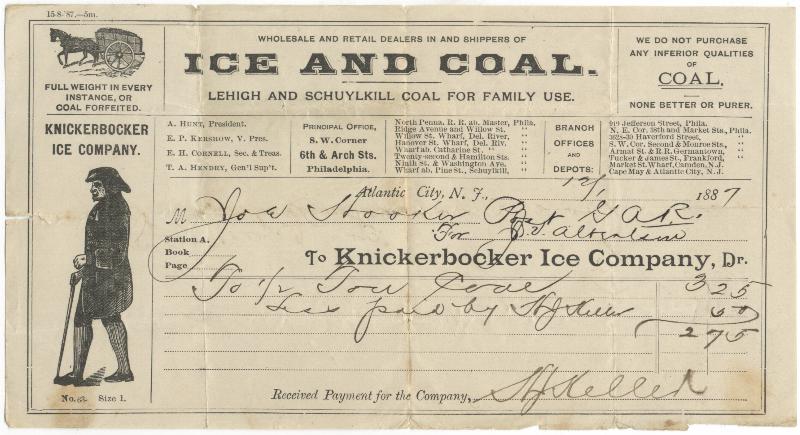 15-8-'87.—5m.
FULL WEIGHT IN EVERY
INSTANCE, OR
COAL FORFEITED.
WHOLESALE AND RETAIL DEALERS IN AND SHIPPERS OF
ICE AND COAL.
LEHIGH AND SCHUYLKILL COAL FOR FAMILY USE.
WE DO NOT PURCHASE
ANY INFERIOR QUALITIES
OF
COAL.
NONE BETTER OR PURER.
KNICKERBOCKER
ICE COMPANY.
A. HUNT, President.
E. P. KERSHOW, V. Pres.
E. H. CORNELL, Sec. & Treas.
T. A. HENDRY, Gen'l Sup't.
PRINCIPAL OFFICE,
S. W. Corner
6th & Arch Sts.
Philadelphia.
North Penna. R. R. ab. Master, Phila.
Ridge Avenue and Willow St. "
Willow St. Wharf, Del. River, "
Hanover St. Wharf, Del. Riv. "
Wharf ab. Catharine St. "
Twenty-second & Hamilton Sts. "
Ninth St. & Washington Ave. "
Wharf ab. Pine St., Schuylkill, "
BRANCH
OFFICES
AND
DEPOTS:
919 Jefferson Street, Phila.
N. E. Cor. 38th and Market Sts., Phila.
Haverford Street, "
S. W. Cor. Second & Monroe Sts., "
Armat St. & R. R. Germantown, "
Tucker & James St., Frankford, "
Market St. Wharf, Camden, N. J.
Cape May & Atlantic City, N. J.
Atlantic City, N. J., 12/1 1887
M Joe Hooker Post G A R.
For
Station A.
Book
Page
To Knickerbocker Ice Company, Dr.
To 1/2 Ton Coal 3 25
Less paid by H J Keller 50
2 75
Received Payment for the Company, H J Keller
No. Size 1.